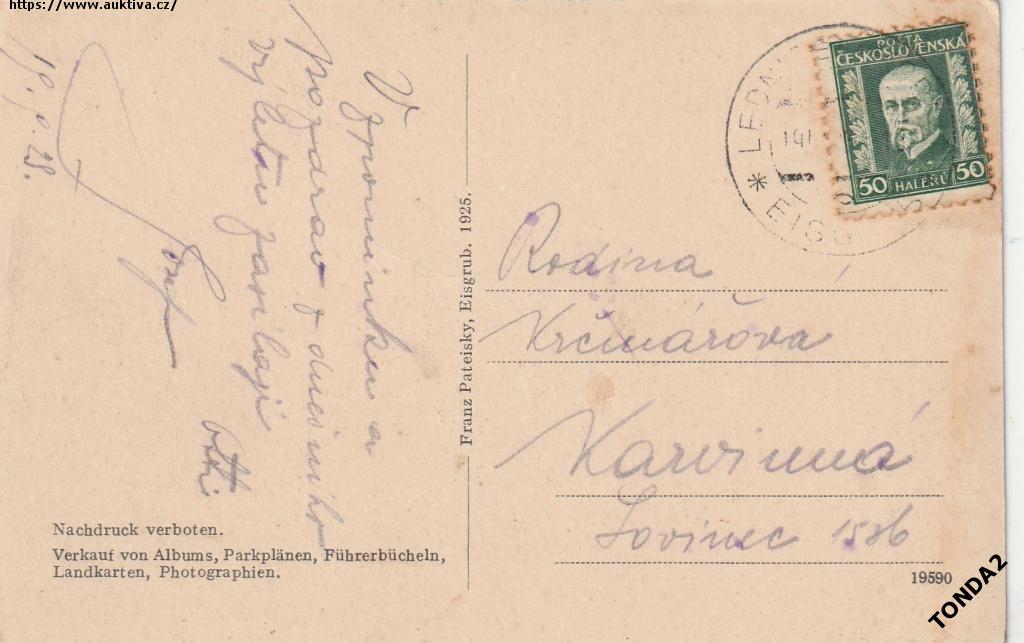 https://www.auktiva.cz/
19. 9. 28.
Vzpomínku a
pozdrav z dnešního
výletu zasílají
Josef
Otti
Nachdruck verboten.
Verkauf von Albums, Parkplänen, Führerbücheln,
Landkarten, Photographien.
Franz Pateisky, Eisgrub. 1925.
POŠTA
ČESKOSLOVENSKÁ
50 HALÉŘŮ 50
Rodina
Krčmářova
Karvinná
Sovinec 1586
19590
TONDA2